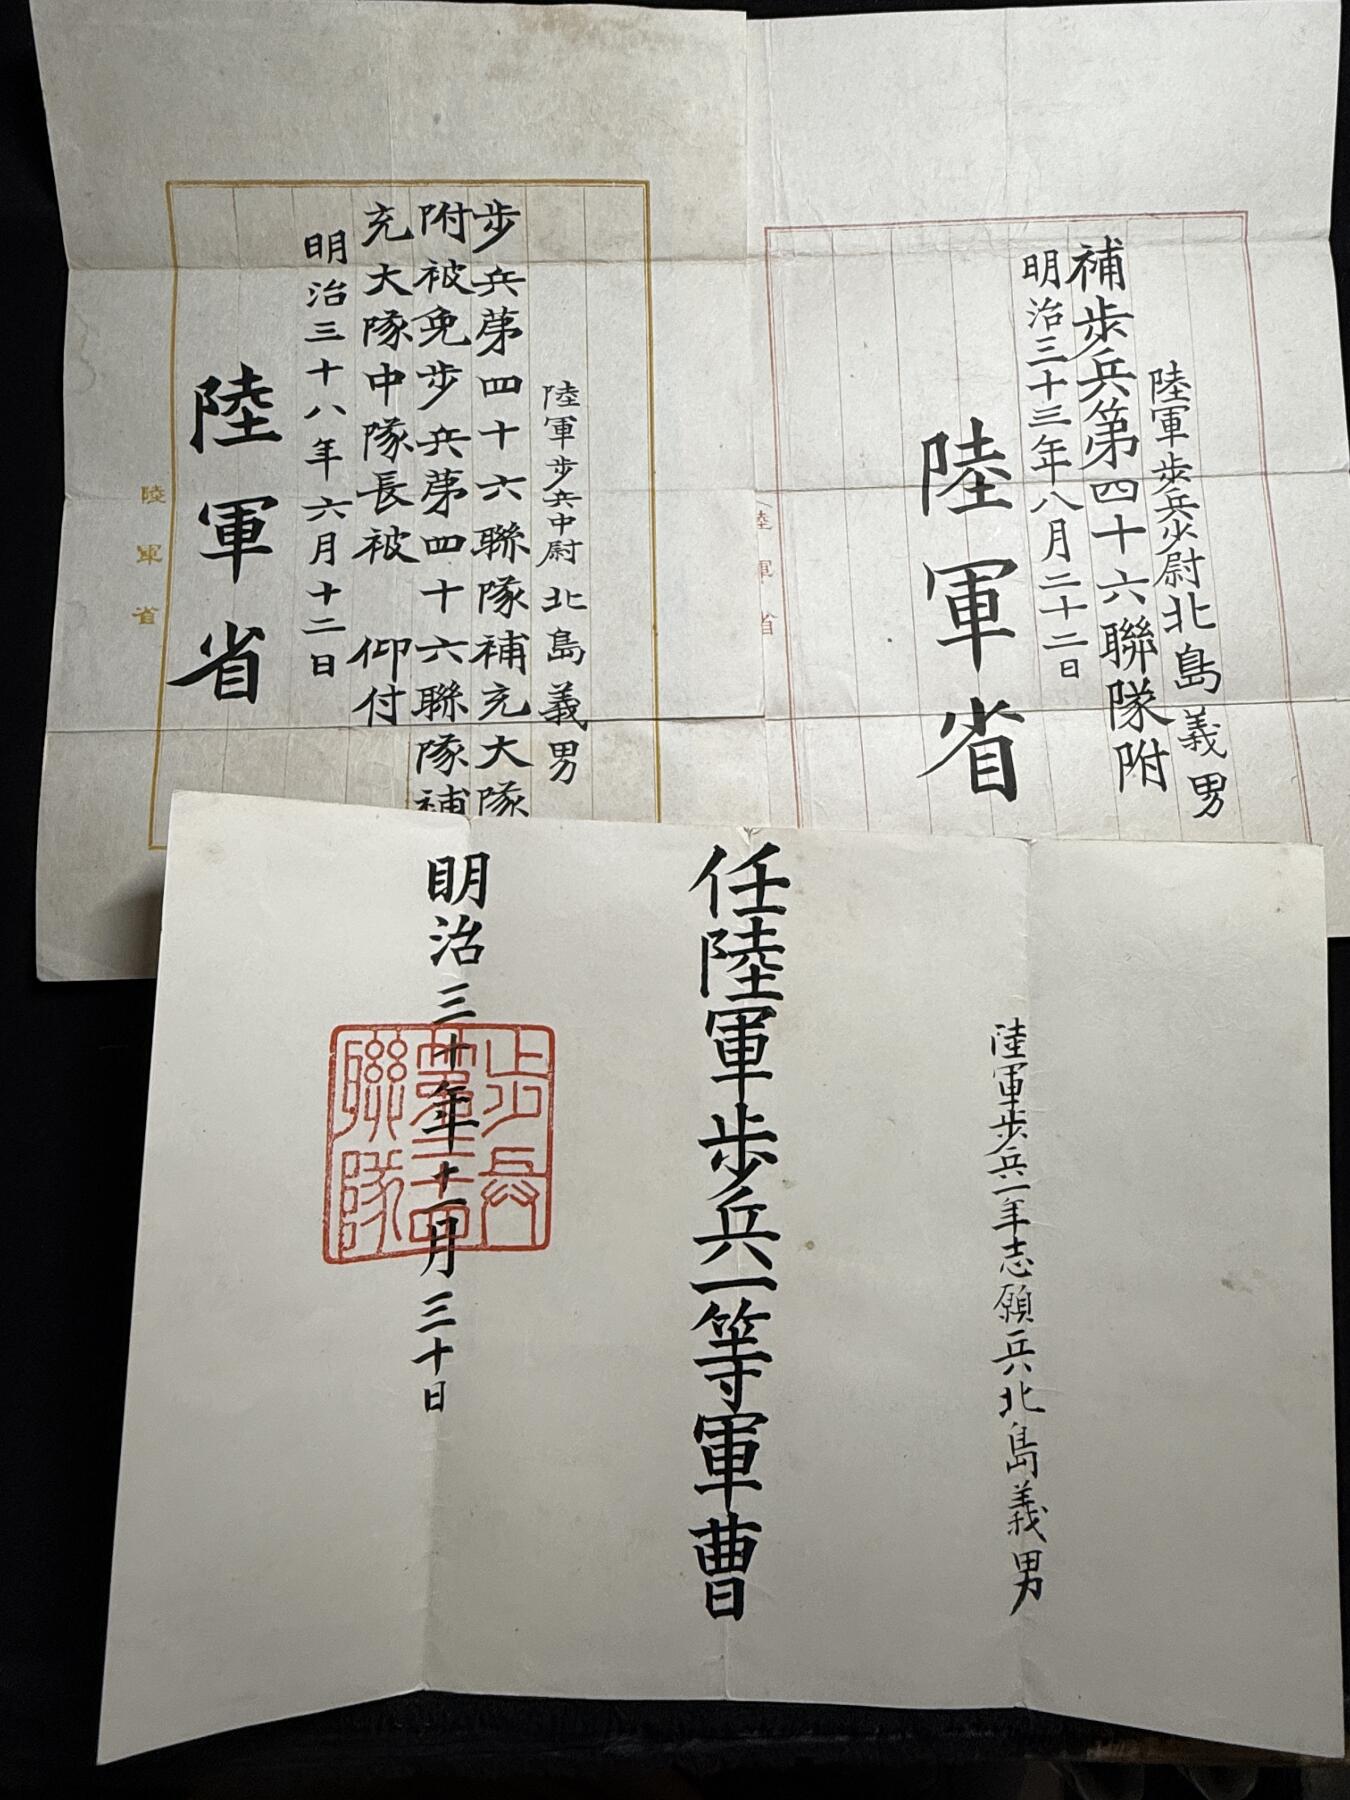 陸軍歩兵少尉北島義男
補歩兵第四十六聯隊附
明治三十三年八月二十二日
陸軍省
陸軍省
陸軍歩兵中尉北島義男
歩兵第四十六聯隊補充大隊
附被免歩兵第四十六聯隊補
充大隊中隊長被 仰付
明治三十八年六月十二日
陸軍省
陸軍省
陸軍歩兵一年志願兵北島義男
任陸軍歩兵一等軍曹
明治三十年十一月三十日
歩兵
第二十四
聯隊